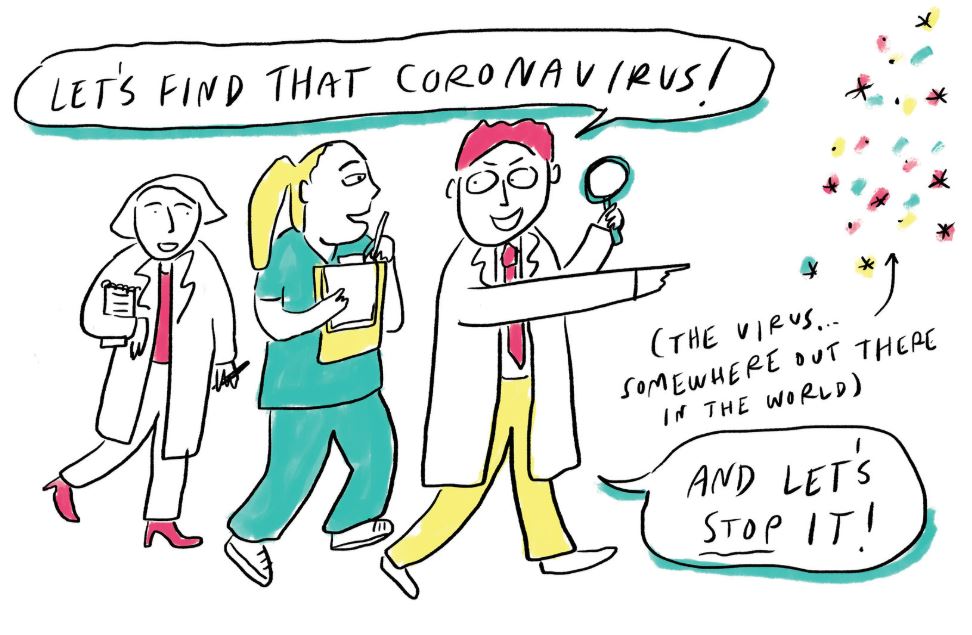 LET'S FIND THAT CORONAVIRUS!
(THE VIRUS...
SOMEWHERE OUT THERE
IN THE WORLD)
AND LET'S
STOP IT!